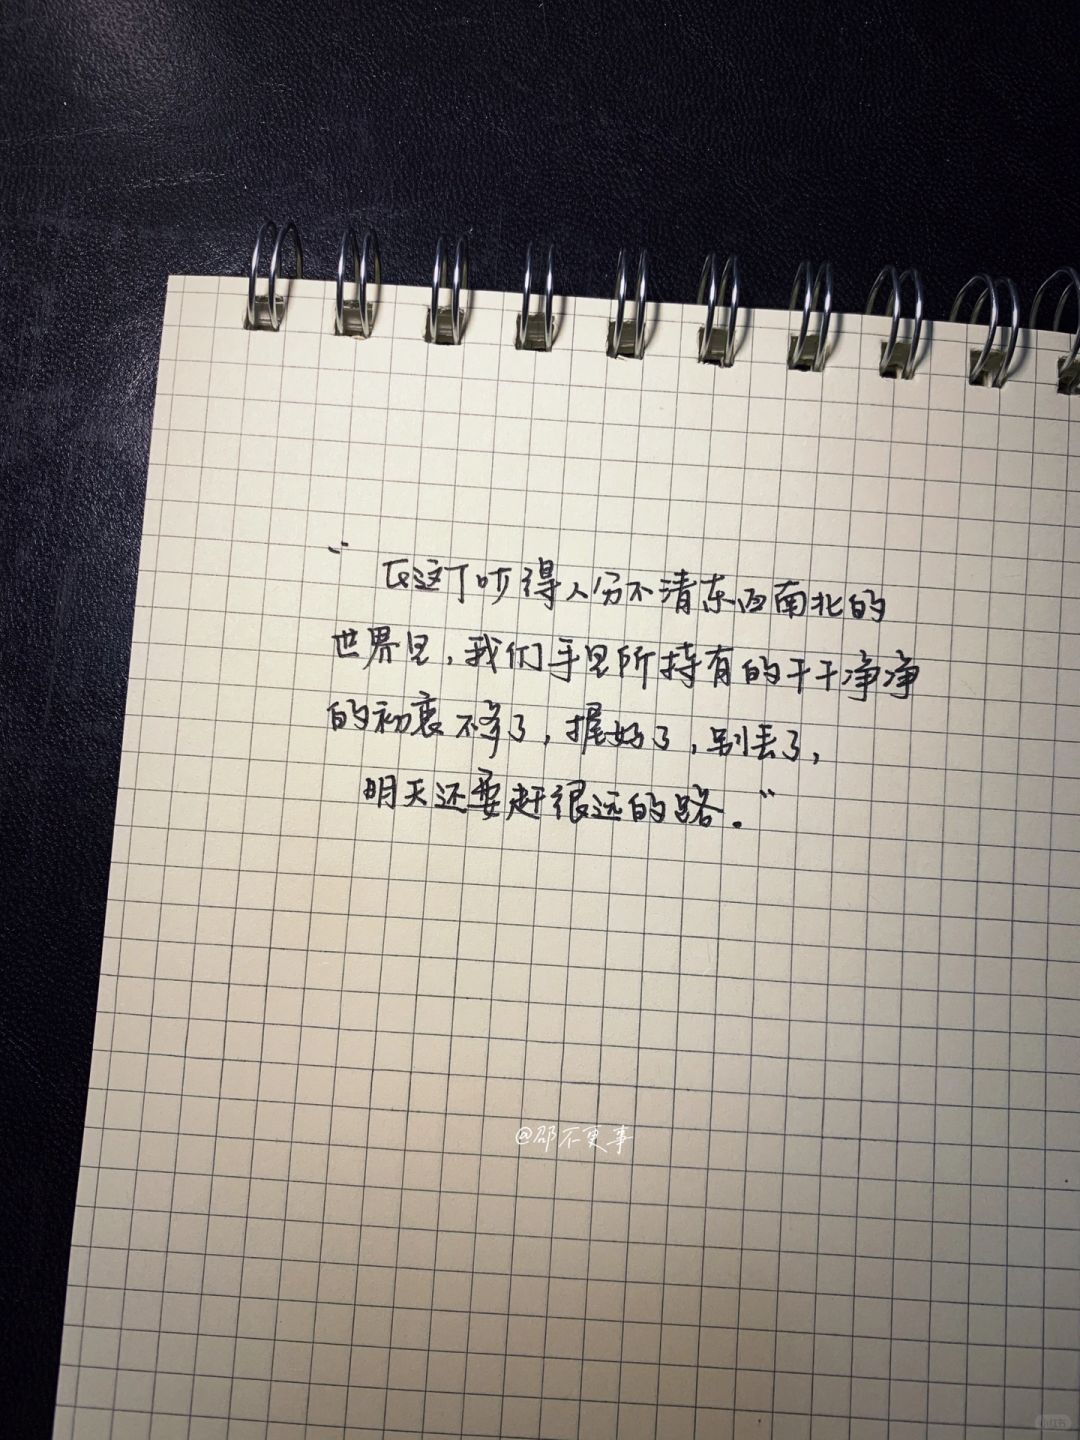 “在这个吵得人分不清东西南北的
世界里，我们手里所持有的干干净净
的初衷不多了，握好了，别丢了，
明天还要赶很远的路。”
@邵不更事
小红书